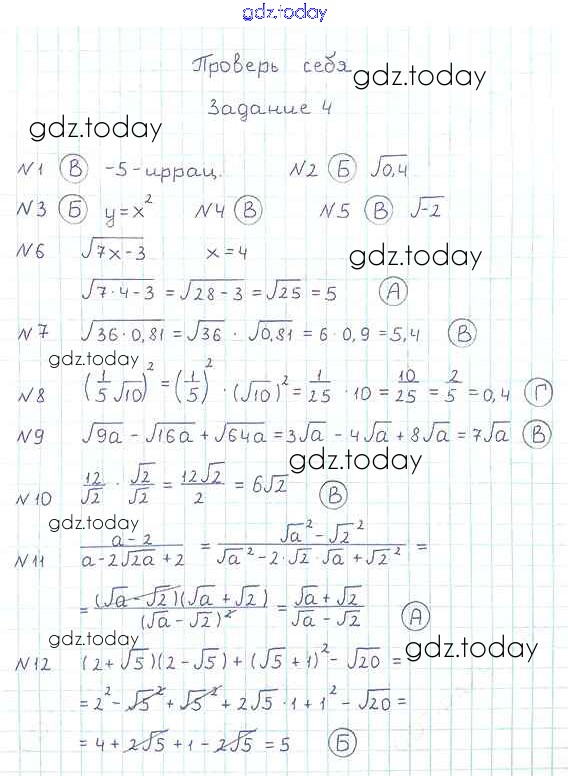 gdz.today
Проверь себя
gdz.today
Задание 4
gdz.today
№1 (В) -5 - иррац. №2 (Б) √0,4
№3 (Б) y=x² №4 (В) №5 (В) √-2
№6 √7x-3 x=4
gdz.today
√7·4-3 = √28-3 = √25 = 5 (А)
№7 √36·0,81 = √36 · √0,81 = 6·0,9 = 5,4 (В)
gdz.today
№8 (1/5 √10)² = (1/5)² · (√10)² = 1/25 · 10 = 10/25 = 2/5 = 0,4 (Г)
№9 √9a - √16a + √64a = 3√a - 4√a + 8√a = 7√a (В)
gdz.today
№10 12/√2 · √2/√2 = 12√2/2 = 6√2 (В)
gdz.today
№11 a-2/a-2√2a+2 = √a²-√2²/√a²-2·√2·√a+√2² =
= (√a-√2)(√a+√2)/(√a-√2)² = √a+√2/√a-√2 (А)
gdz.today
gdz.today
№12 (2+√5)(2-√5)+(√5+1)²-√20 =
= 2²-√5²+√5²+2√5·1+1²-√20 =
= 4+2√5+1-2√5 = 5 (Б)